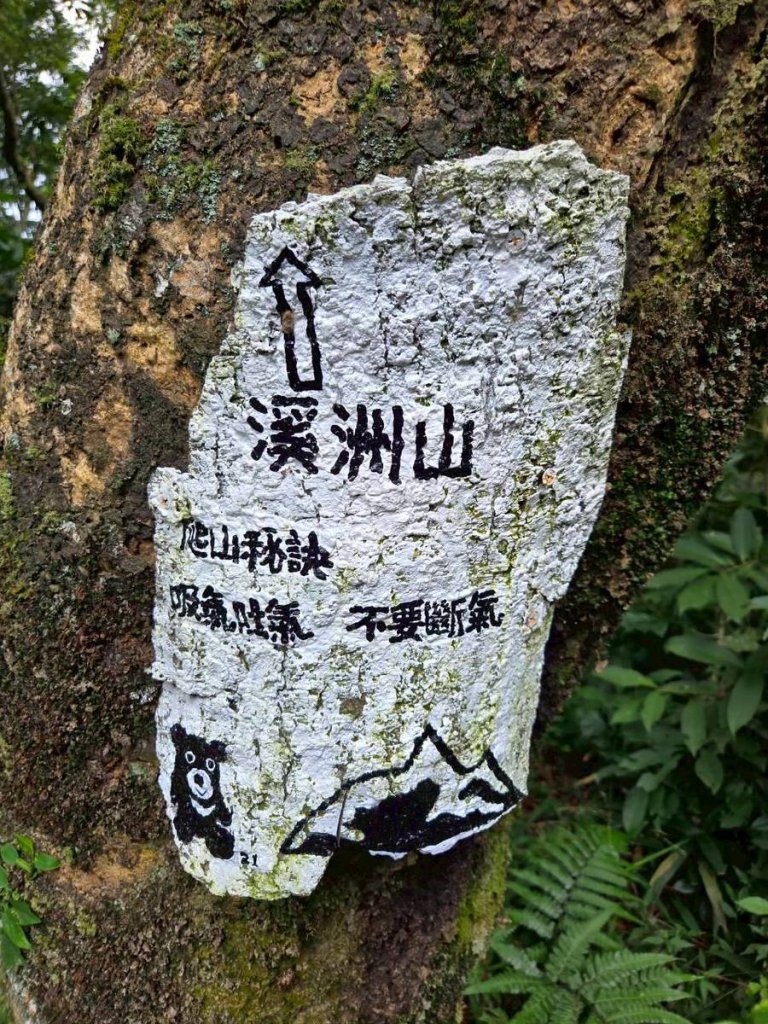 溪洲山
爬山秘訣
吸氣吐氣 不要斷氣
21